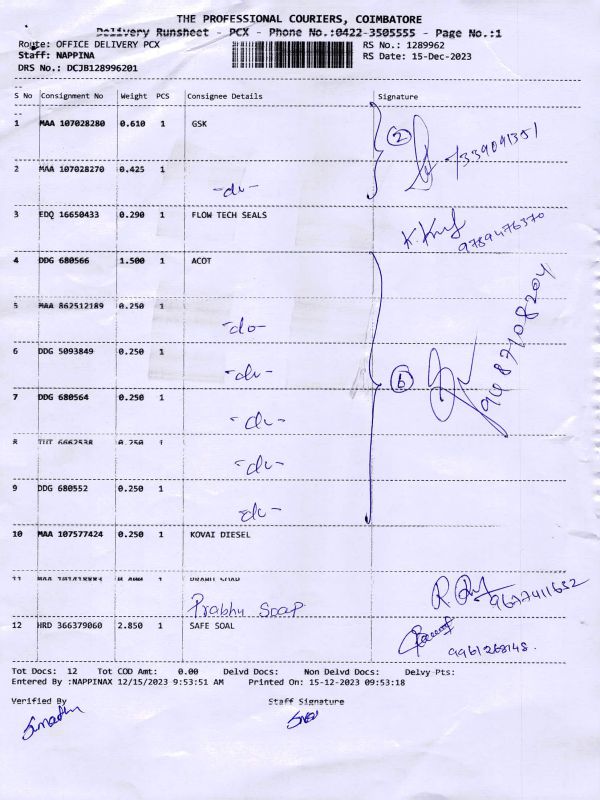 THE PROFESSIONAL COURIERS, COIMBATORE
Delivery Runsheet - PCX - Phone No.:0422-3505555 - Page No.:1
Route: OFFICE DELIVERY PCX RS No.: 1289962
Staff: NAPPINA RS Date: 15-Dec-2023
DRS No.: DCJB128996201
S No Consignment No Weight PCS Consignee Details Signature
1 MAA 107028280 0.610 1 GSK
2 7339091351
2 MAA 107028270 0.425 1
-do-
3 EDQ 16650433 0.290 1 FLOW TECH SEALS
9789476370
4 DDG 680566 1.500 1 ACOT
5 MAA 862512189 0.250 1
-do-
6 DDG 5093849 0.250 1
-do-
6 9487108204
7 DDG 680564 0.250 1
-do-
8 0.250 1
-do-
9 DDG 680552 0.250 1
-do-
10 MAA 107577424 0.250 1 KOVAI DIESEL
11 1 PRABHU SOAP
Prabhu Soap 9677411652
12 HRD 366379060 2.850 1 SAFE SOAL
9961268148.
Tot Docs: 12 Tot COD Amt: 0.00 Delvd Docs: Non Delvd Docs: Delvy Pts:
Entered By :NAPPINAX 12/15/2023 9:53:51 AM Printed On: 15-12-2023 09:53:18
Verified By Staff Signature